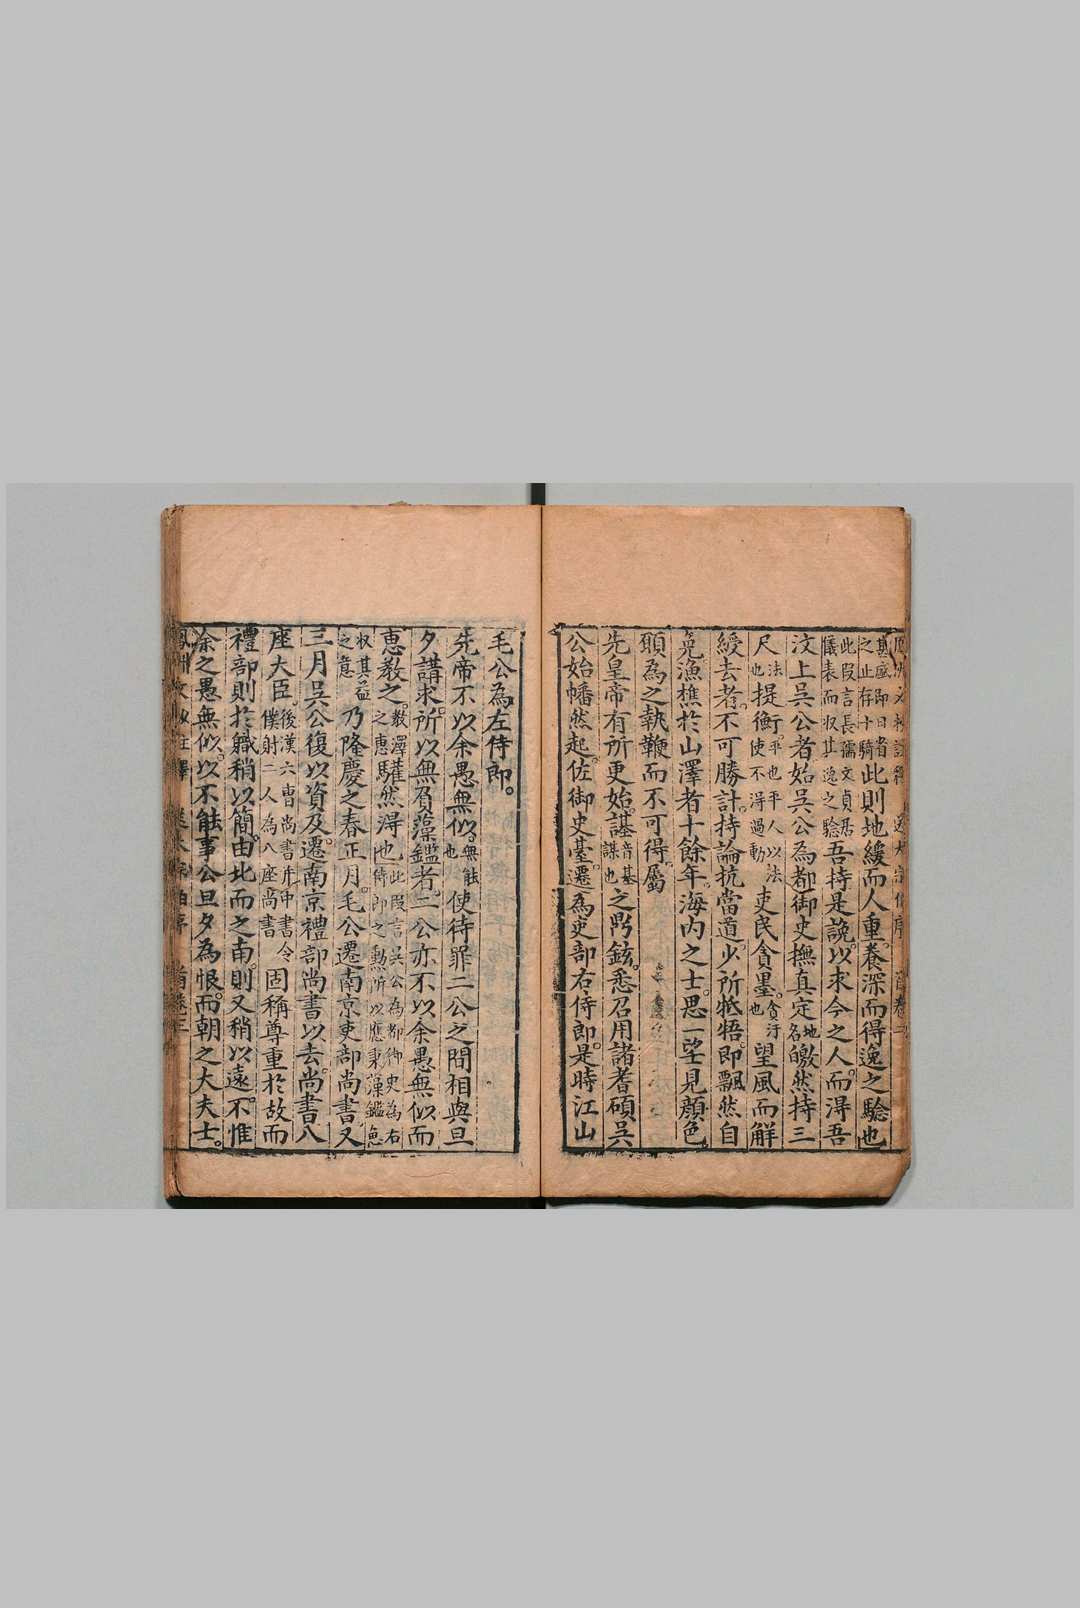 其盛即日者此則地緩而人重養深而得逸之驗也
之止存十騎
此叚言長孺文貞居吾持是說以求今之人而淂吾
儀表而収其逸之驗
汶上吳公者始吳公為都御史撫真定地名皦然持三
尺法也提衡平也平人以法使不得過動吏民貪墨貪汙也望風而解
綬去者不可勝計持論抗當道少所牴牾即飄然自
晃漁樵於山澤者十餘年海内之士思一望見顏色
願為之執鞭而不可得屬
先皇帝有所更始諆音基謀也之鼎鉉悉召用諸耆碩吳
公始幡然起佐御史臺遷為吏部右侍郎是時江山
毛公為左侍郎
先帝不以余愚無似無能也使待罪二公之間相與旦
夕講求所以無負藻鑑者二公亦不以余愚無似而
惠教之教澤之惠驩然淂也此叚言吳公為都御史為右侍郎之勲所以應東藻鑑愈
収其益之意乃隆慶之春正月毛公遷南京吏部尚書又
三月吳公復以資及遷南京禮部尚書以去尚書八
座大臣後漢六曹尚書并中書令僕射二人為八座尚書固稱尊重於故而
禮部則於職稍以簡由北而之南則又稍以遠不惟
余之愚無似以不能事公旦夕為恨而朝之大夫士